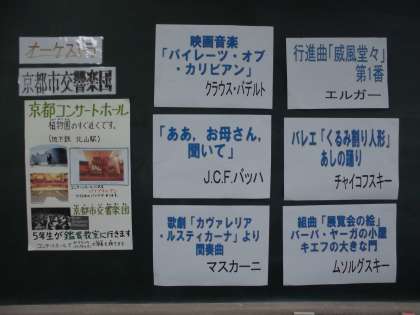 オーケストラ
京都市交響楽団
京都コンサートホール
植物園のすぐ近くです。
(地下鉄 北山駅)
京都市交響楽団
5年生が鑑賞教室に行きます
映画音楽
「パイレーツ・オブ
・カリビアン」
クラウス・バデルト
「ああ、お母さん,
聞いて」
J.C.F.バッハ
歌劇「カヴァレリア
・ルスティカーナ」より
間奏曲
マスカーニ
行進曲「威風堂々」
第1番
エルガー
バレエ「くるみ割り人形」
あしの踊り
チャイコフスキー
組曲「展覧会の絵」
バーバ・ヤーガの小屋
キエフの大きな門
ムソルグスキー